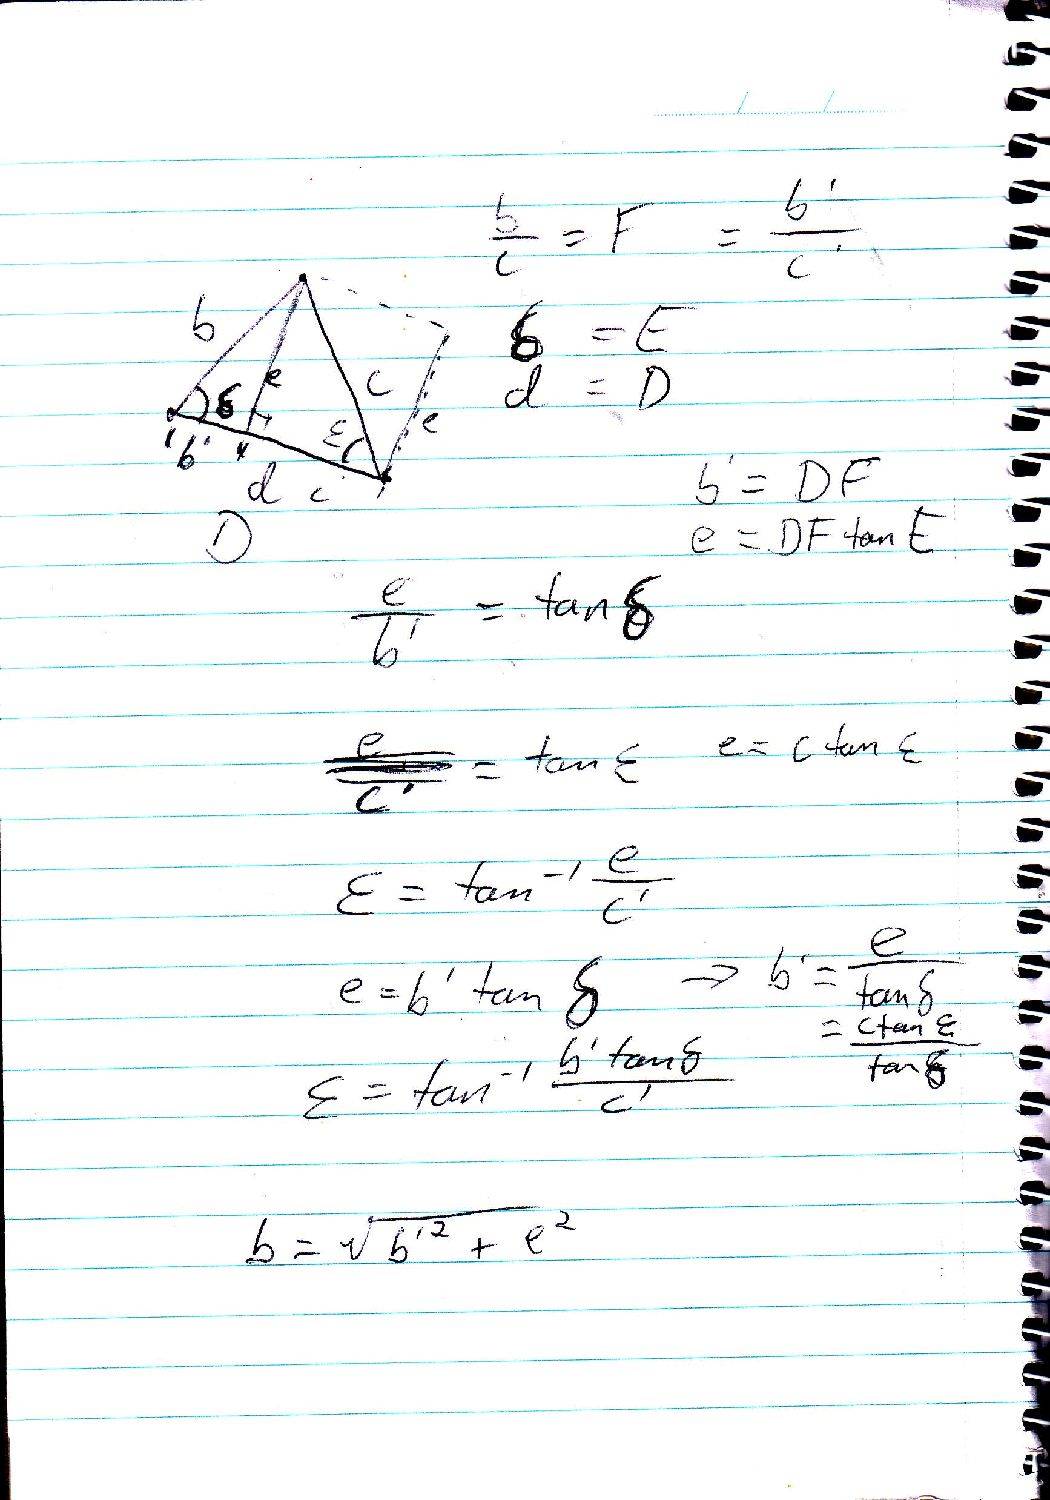 b/c = F = b'/c'
δ = E
d = D
b c e δ ε e b' d c' D
b' = DF
e = DF tan E
e/b' = tan δ
e/c' = tan ε e = c tan ε
ε = tan⁻¹ e/c'
e = b' tan δ → b' = e/tan δ
= c tan ε/tan δ
ε = tan⁻¹ b' tan δ/c'
b = √b'² + e²